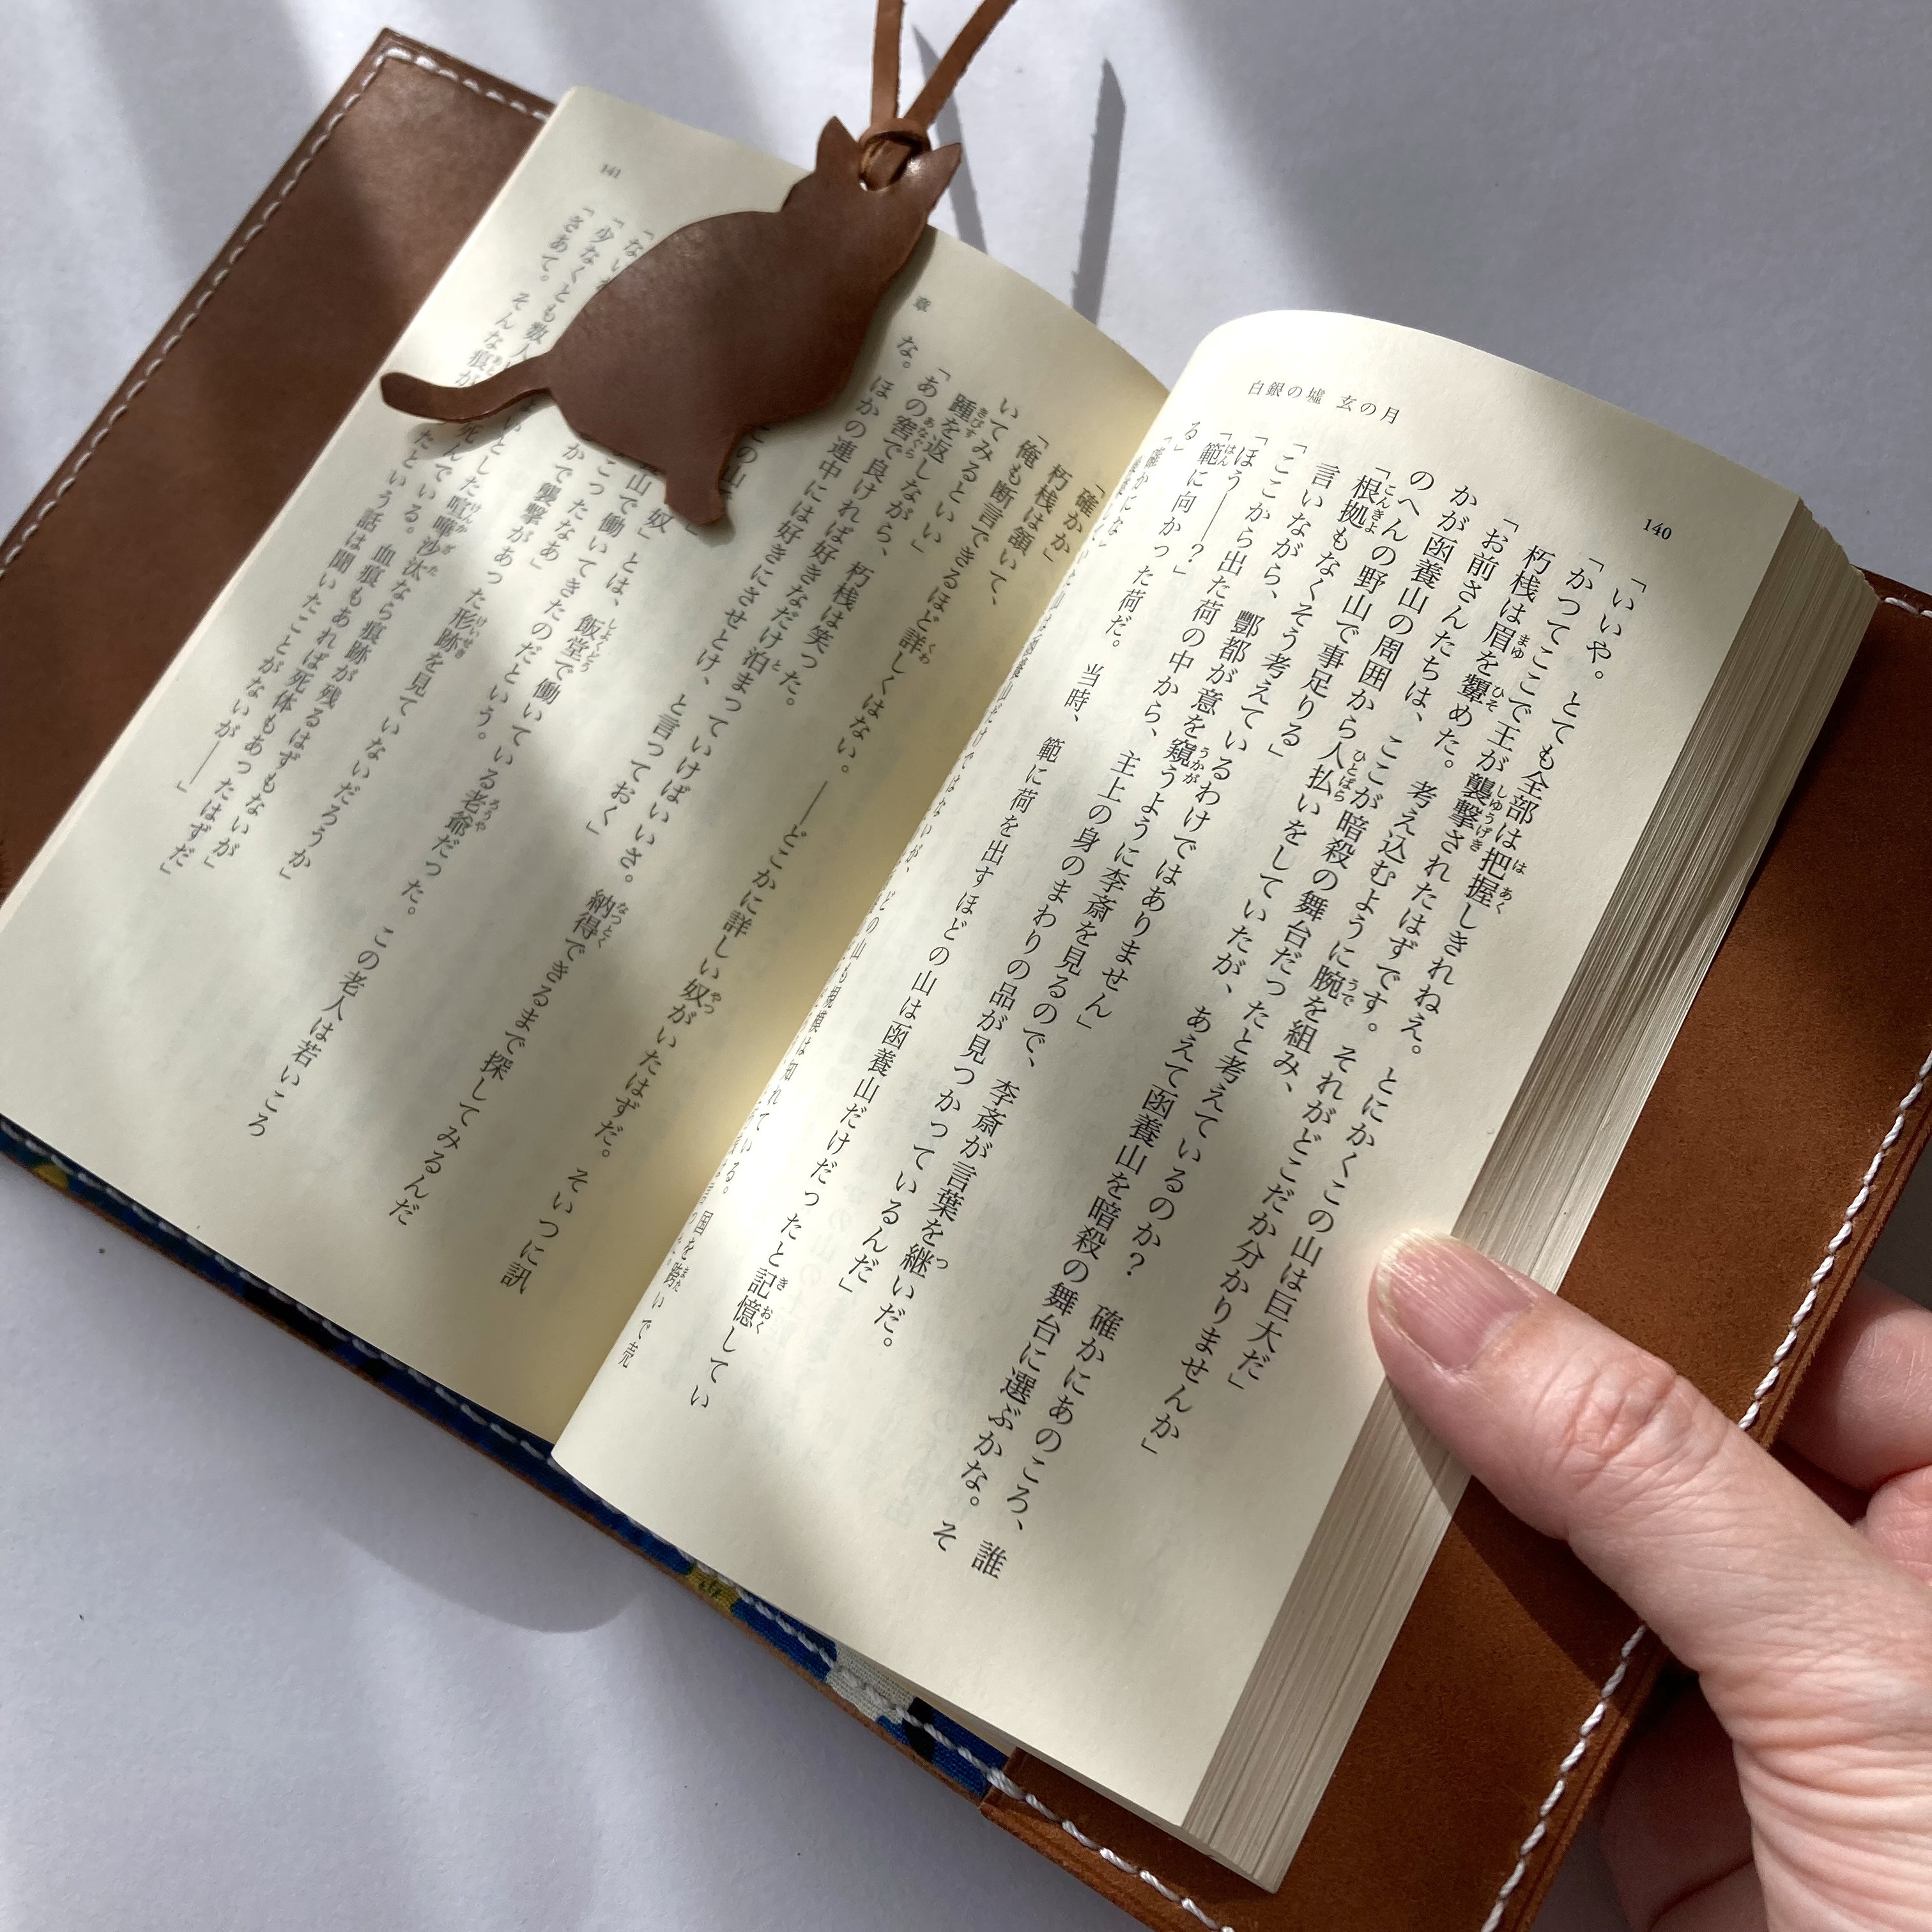 白銀の墟 玄の月
140
「いいや。とても全部は把握しきれねえ。とにかくこの山は巨大だ」
「かつてここで王が襲撃されたはずです。それがどこだか分かりませんか」
朽桟は眉を顰めた。考え込むように腕を組み、
「お前さんたちは、ここが暗殺の舞台だったと考えているのか？　確かにあのころ、誰
かが函養山の周囲から人払いをしていたが、あえて函養山を暗殺の舞台に選ぶかな。そ
のへんの野山で事足りる」
「根拠もなくそう考えているわけではありません」
言いながら、酆都が意を窺うように李斎を見るので、李斎が言葉を継いだ。
「ここから出た荷の中から、主上の身のまわりの品が見つかっているんだ」
「ほう――？」
「範に向かった荷だ。当時、範に荷を出すほどの山は函養山だけだったと記憶してい
る」
山は函養山だけではないが、どの山も規模は知れている。国を跨いで売
141
章
「確かか」
朽桟は頷いて、
「俺も断言できるほど詳しくはない。――どこかに詳しい奴がいたはずだ。そいつに訊
いてみるといい」
踵を返しながら、朽桟は笑った。
「あの窖で良ければ好きなだけ泊まっていけばいいさ。納得できるまで探してみるんだ
な。ほかの連中には好きにさせとけ、と言っておく」
奴」とは、飯堂で働いている老爺だった。この老人は若いころ
山で働いてきたのだという。
この山
かで襲撃があった形跡を見ていないだろうか」
こったなあ」
いとした喧嘩沙汰なら痕跡が残るはずもないが」
「少なくとも数人 死んでいる。血痕もあれば死体もあったはずだ」
「さあて。そんな痕が たという話は聞いたことがないが――」